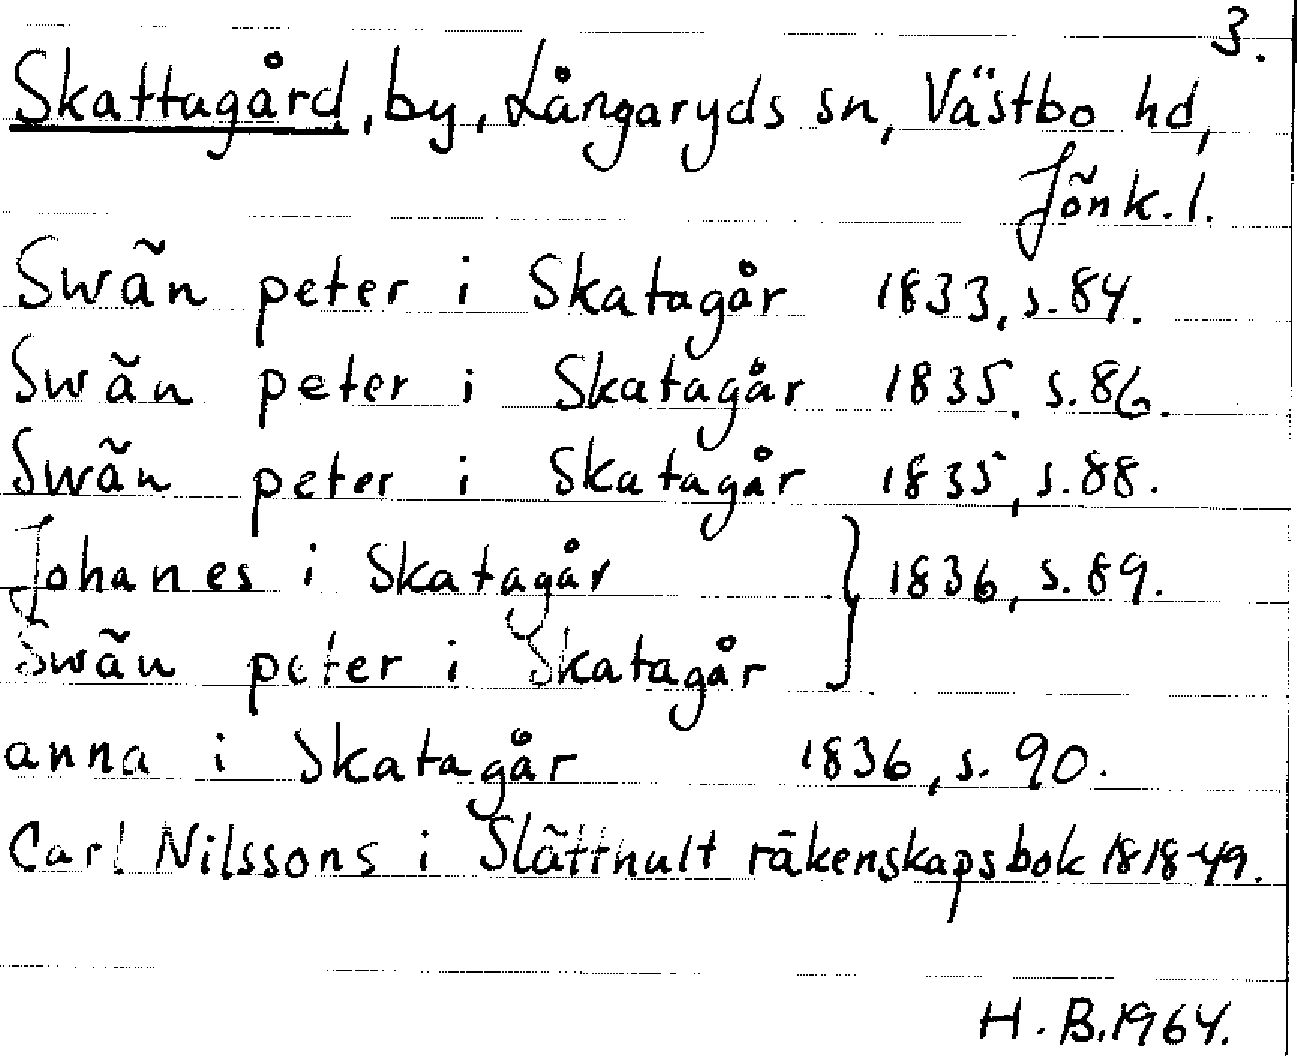 3.
Skattagård, by, Långaryds sn, Västbo hd,
Jönk. l.
Swän peter i Skatagår 1833, s. 84.
Swän peter i Skatagår 1835. s. 86.
Swän peter i Skatagår 1835, s. 88.
Johanes i Skatagår } 1836, s. 89.
Swän peter i Skatagår
anna i Skatagår 1836, s. 90.
Carl Nilssons i Slätthult räkenskapsbok 1818-49.
H. B. 1964.